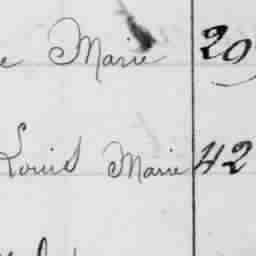 e Marie 20
Louis Marie 42